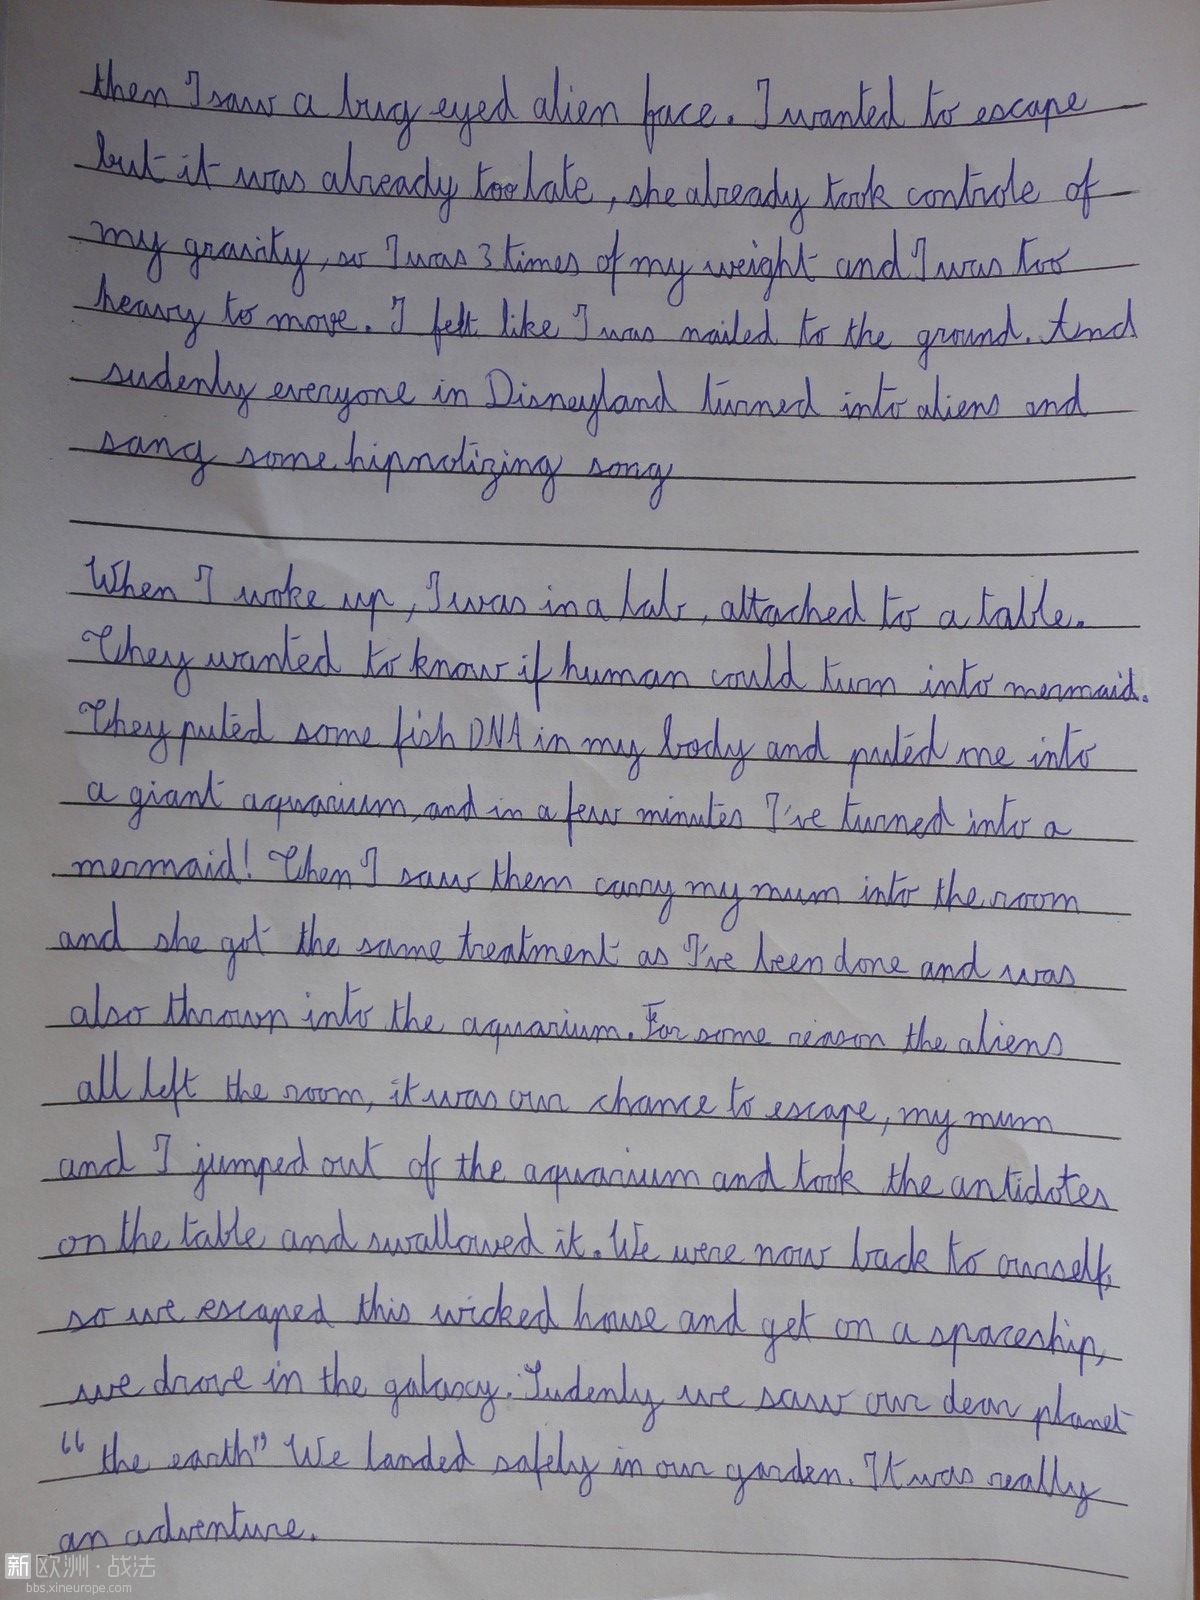 then I saw a bug eyed alien face. I wanted to escape
but it was already too late, she already took controle of
my gravity, so I was 3 times of my weight and I was too
heavy to move. I felt like I was nailed to the ground. And
sudenly everyone in Disneyland turned into aliens and
sang some hipnotizing song
When I woke up, I was in a lab, attached to a table.
They wanted to know if human could turn into mermaid.
They puted some fish DNA in my body and puted me into
a giant aquarium, and in a few minutes I've turned into a
mermaid! Then I saw them carry my mum into the room
and she got the same treatment as I've been done and was
also thrown into the aquarium. For some reason the aliens
all left the room, it was our chance to escape, my mum
and I jumped out of the aquarium and took the antidotes
on the table and swallowed it. We were now back to ourself,
so we escaped this wicked house and get on a spaceship,
we drove in the galaxy. Sudenly we saw our dear planet
“the earth” We landed safely in our garden. It was really
an adventure.
新欧洲·战法
bbs.xineurope.com